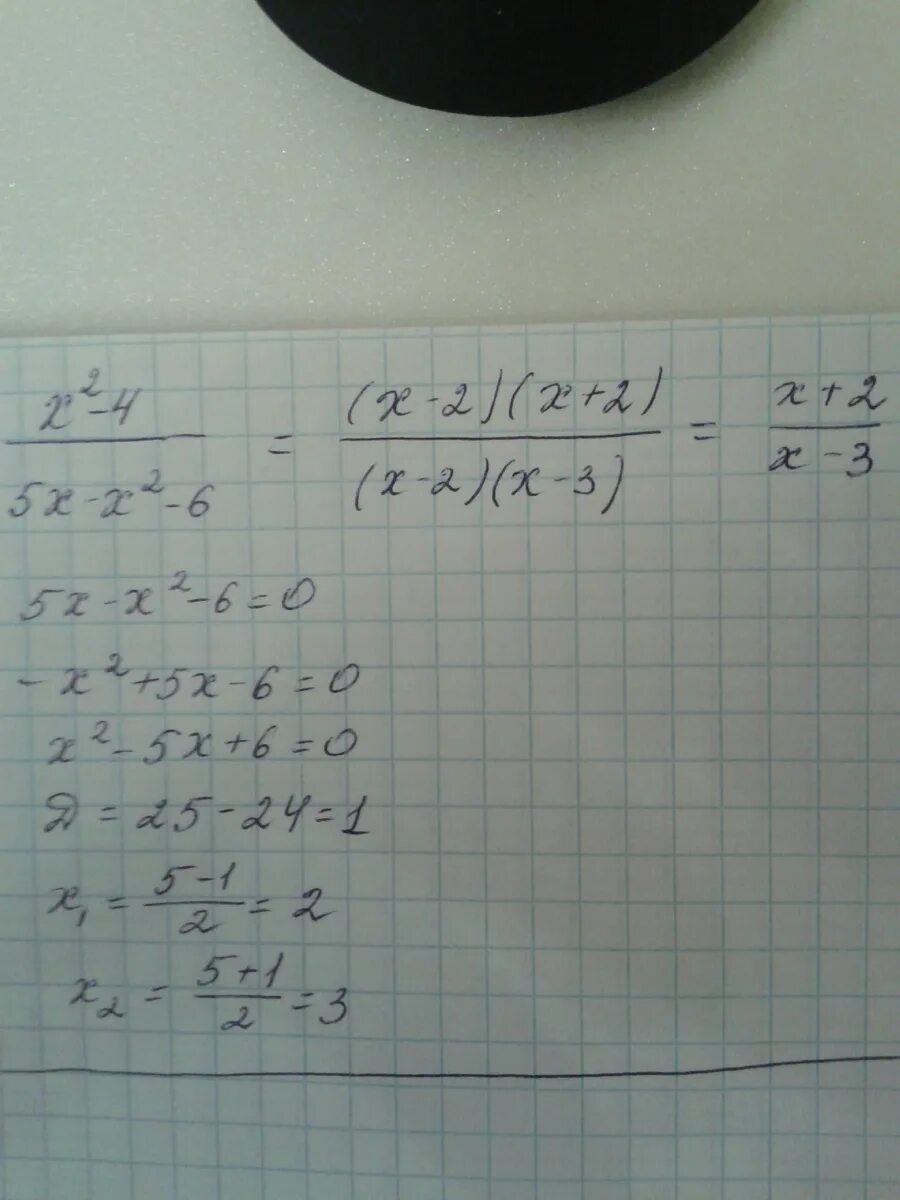 (x²-4)/(5x-x²-6) = ((x-2)(x+2))/((x-2)(x-3)) = (x+2)/(x-3)
5x-x²-6=0
-x²+5x-6=0
x²-5x+6=0
Д=25-24=1
x₁=(5-1)/2=2
x₂=(5+1)/2=3